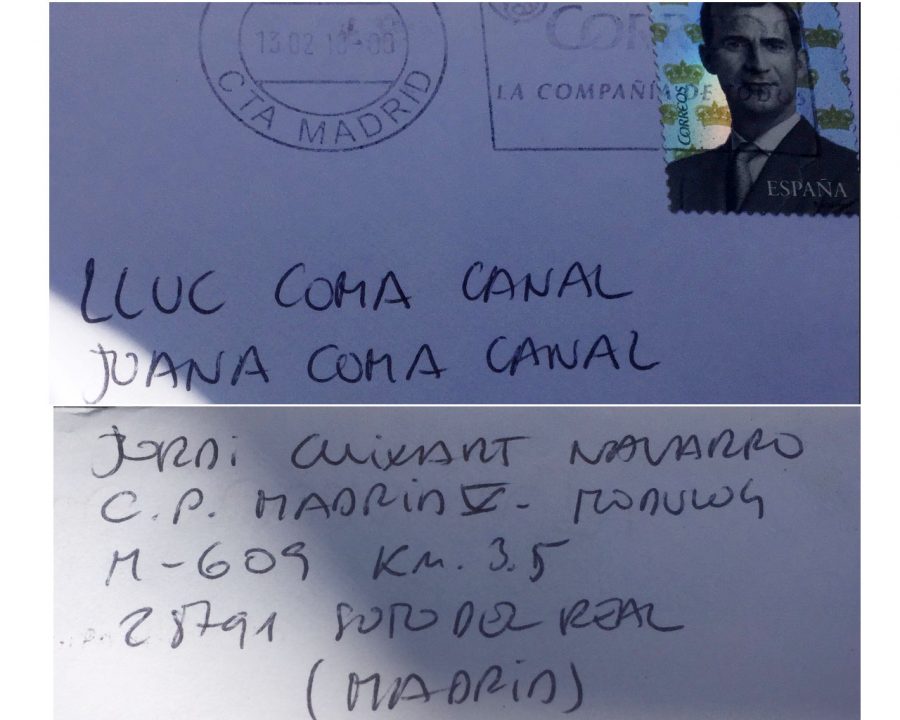 13.02 18-00
CTA MADRID
CORR
LA COMPAÑÍA DE TODOS
CORREOS
ESPAÑA
LLUC COMA CANAL
JUANA COMA CANAL
JORDi CUiXART NAVARRO
C.P. MADRID V - MODULO 9
M-609 Km. 3.5
28791 SOTO DEL REAL
(MADRiD)